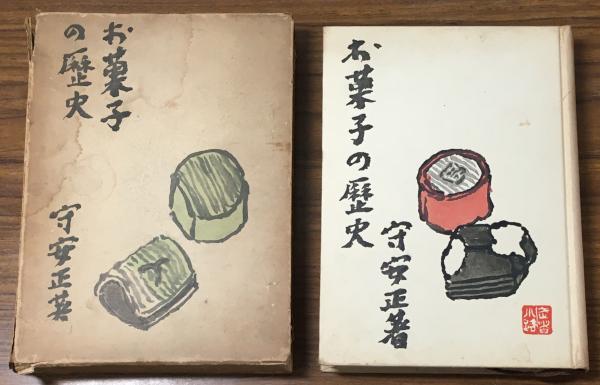 お菓子
の歴史
守安正著
お菓子の歴史
守安正著